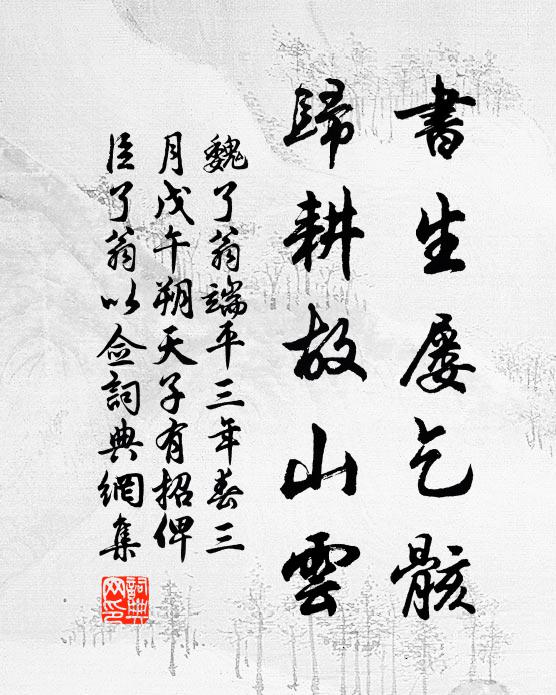 書生屡乞骸
歸耕故山雲
魏了翁端平三年春三
月戊午朔天子有招俾
臣了翁以僉詞典網集